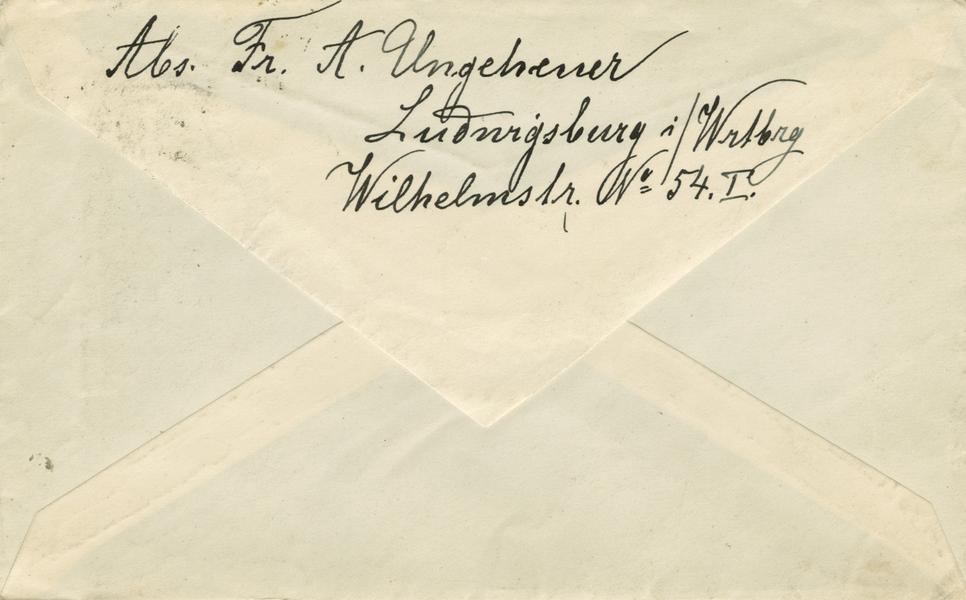 Abs. Fr. A. Ungeheuer
Ludwigsburg i/Wrtbrg
Wilhelmstr. No 54. I.